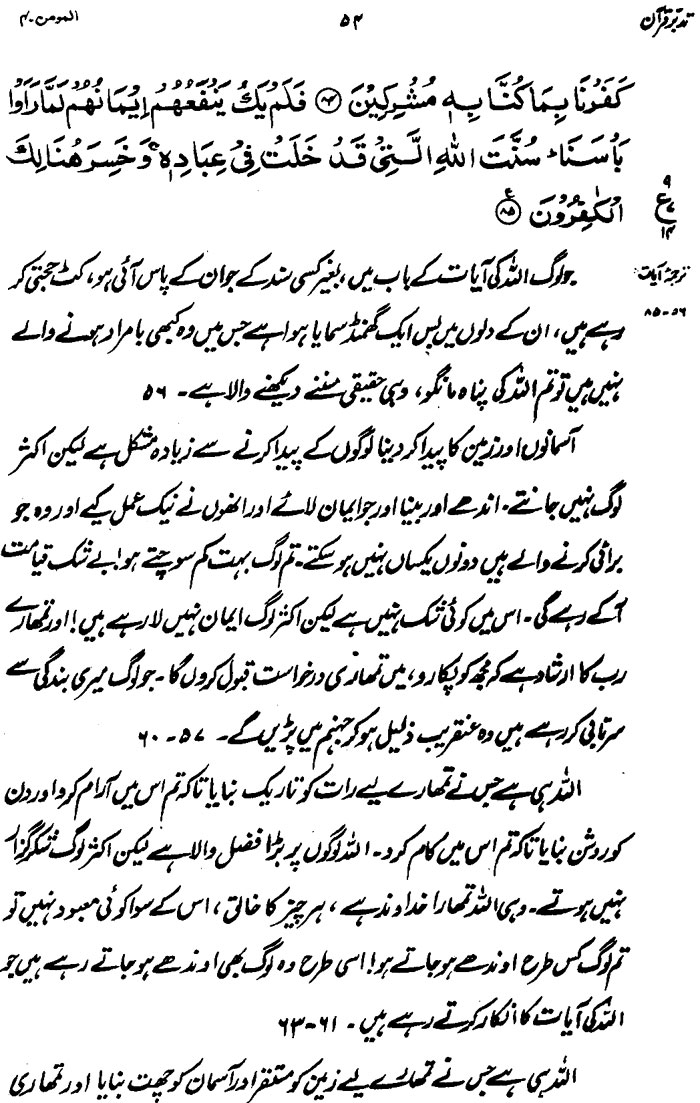 تدبرِ قرآن ۵۴ المومن ۴۰
كَفَرْنَا بِمَا كُنَّا بِهٖ مُشْرِكِيْنَ ﴿۸۴﴾ فَلَمْ يَكُ يَنْفَعُهُمْ اِيْمَانُهُمْ لَمَّا رَاَوْا
بَاْسَنَا ؕ سُنَّتَ اللّٰهِ الَّتِيْ قَدْ خَلَتْ فِيْ عِبَادِهٖ ۚ وَخَسِرَ هُنَالِكَ
الْكٰفِرُوْنَ ﴿۸۵﴾ ع
۹
ع
۱۴
ترجمۂ آیات
۵۶-۸۵
جو لوگ اللہ کی آیات کے باب میں، بغیر کسی سند کے جو ان کے پاس آئی ہو، کٹ حجتی کر
رہے ہیں، ان کے دلوں میں بس ایک گھمنڈ سمایا ہوا ہے جس میں وہ کبھی بامراد ہونے والے
نہیں ہیں تو تم اللہ کی پناہ مانگو، وہی حقیقی سننے دیکھنے والا ہے۔ ۵۶
آسمانوں اور زمین کا پیدا کر دینا لوگوں کے پیدا کرنے سے زیادہ مشکل ہے لیکن اکثر
لوگ نہیں جانتے۔ اندھے اور بینا اور جو ایمان لائے اور انھوں نے نیک عمل کیے اور وہ جو
برائی کرنے والے ہیں دونوں یکساں نہیں ہو سکتے۔ تم لوگ بہت کم سوچتے ہو! بے شک قیامت
آ کے رہے گی۔ اس میں کوئی شک نہیں ہے لیکن اکثر لوگ ایمان نہیں لا رہے ہیں! اور تمھارے
رب کا ارشاد ہے کہ مجھ کو پکارو، میں تمھاری درخواست قبول کروں گا۔ جو لوگ میری بندگی سے
سرتابی کر رہے ہیں وہ عنقریب ذلیل ہو کر جہنم میں پڑیں گے۔ ۵۷-۶۰
اللہ ہی ہے جس نے تمھارے لیے رات کو تاریک بنایا تاکہ تم اس میں آرام کرو اور دن
کو روشن بنایا تاکہ تم اس میں کام کرو۔ اللہ لوگوں پر بڑا فضل والا ہے لیکن اکثر لوگ شکرگزار
نہیں ہوتے۔ وہی اللہ تمھارا خداوند ہے، ہر چیز کا خالق، اس کے سوا کوئی معبود نہیں تو
تم لوگ کس طرح اوندھے ہو جاتے ہو! اسی طرح وہ لوگ بھی اوندھے ہو جاتے رہے ہیں جو
اللہ کی آیات کا انکار کرتے رہے ہیں۔ ۶۱-۶۳
اللہ ہی ہے جس نے تمھارے لیے زمین کو مستقر اور آسمان کو چھت بنایا اور تمھاری